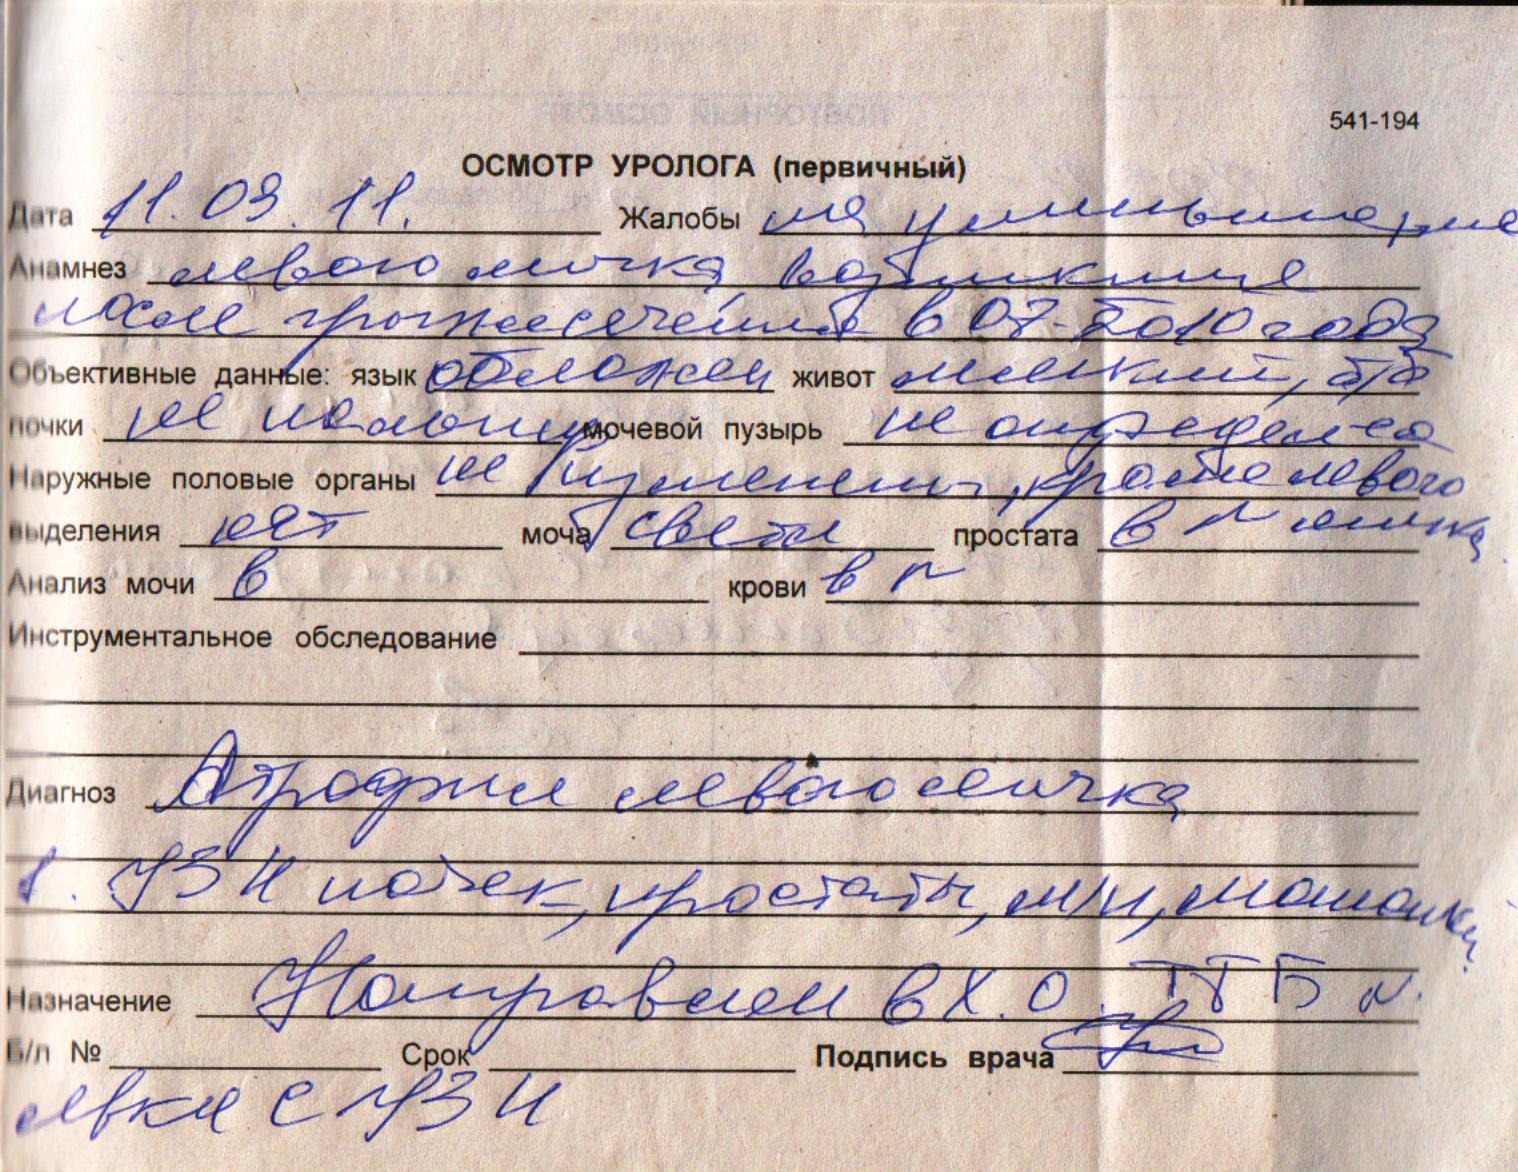 541-194
ОСМОТР УРОЛОГА (первичный)
Дата 11.03.11. Жалобы на уменьшение
Анамнез левого яичка возникшие
после грыжесечения в 07-2010 году
Объективные данные: язык обложен живот мягкий, б/б
почки не пальпир мочевой пузырь не определ-ся
Наружные половые органы не изменены, кроме левого
выделения нет моча светл простата в N яичка
Анализ мочи в крови в N
Инструментальное обследование
Диагноз Атрофия левого яичка
УЗИ почек, простаты, м/п, мошонки.
Назначение Направлен в Х.О.
Б/л № Срок Подпись врача
явка с УЗИ